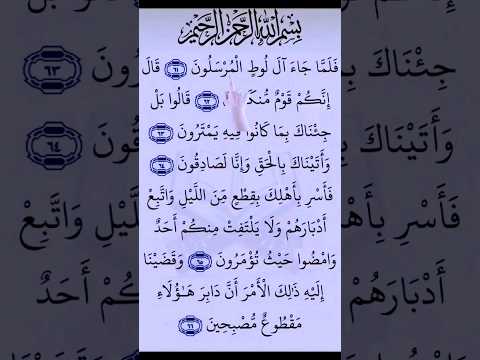 بِسْمِ اللَّهِ الرَّحْمَٰنِ الرَّحِيمِ
فَلَمَّا جَاءَ آلَ لُوطٍ الْمُرْسَلُونَ ﴿٦١﴾ قَالَ
إِنَّكُمْ قَوْمٌ ﴿٦٢﴾ قَالُوا بَلْ
جِئْنَاكَ بِمَا كَانُوا فِيهِ يَمْتَرُونَ ﴿٦٣﴾
وَأَتَيْنَاكَ بِالْحَقِّ وَإِنَّا لَصَادِقُونَ ﴿٦٤﴾
فَأَسْرِ بِأَهْلِكَ بِقِطْعٍ مِّنَ اللَّيْلِ وَاتَّبِعْ
أَدْبَارَهُمْ وَلَا يَلْتَفِتْ مِنكُمْ أَحَدٌ
وَامْضُوا حَيْثُ تُؤْمَرُونَ ﴿٦٥﴾ وَقَضَيْنَا
إِلَيْهِ ذَٰلِكَ الْأَمْرَ أَنَّ دَابِرَ هَٰؤُلَاءِ
مَقْطُوعٌ مُّصْبِحِينَ ﴿٦٦﴾